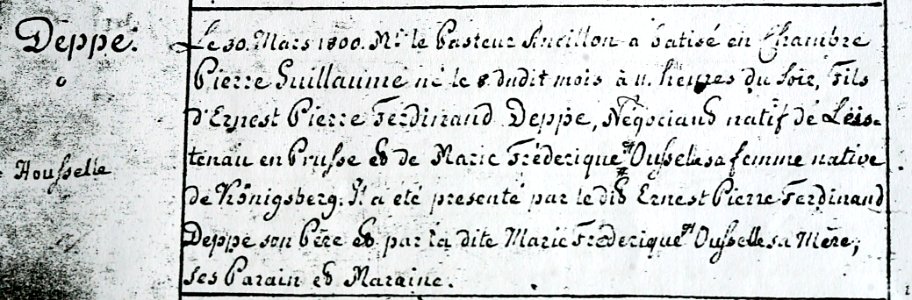 Deppe.
Housselle
Le 30. Mars 1800. Mr. le Pasteur Ancillon a batisé en Chambre
Pierre Guillaume né le 8. dudit mois à 11. heures du soir, Fils
d'Ernest Pierre Ferdinand Deppe, Négociant natif de Leis-
tenau en Prusse et de Marie Fréderique Housselle sa femme native
de Königsberg. Il a été presenté par le dit Ernest Pierre Ferdinand
Deppe son Père et par la dite Marie Fréderique Housselle sa Mère,
ses Parain et Maraine.